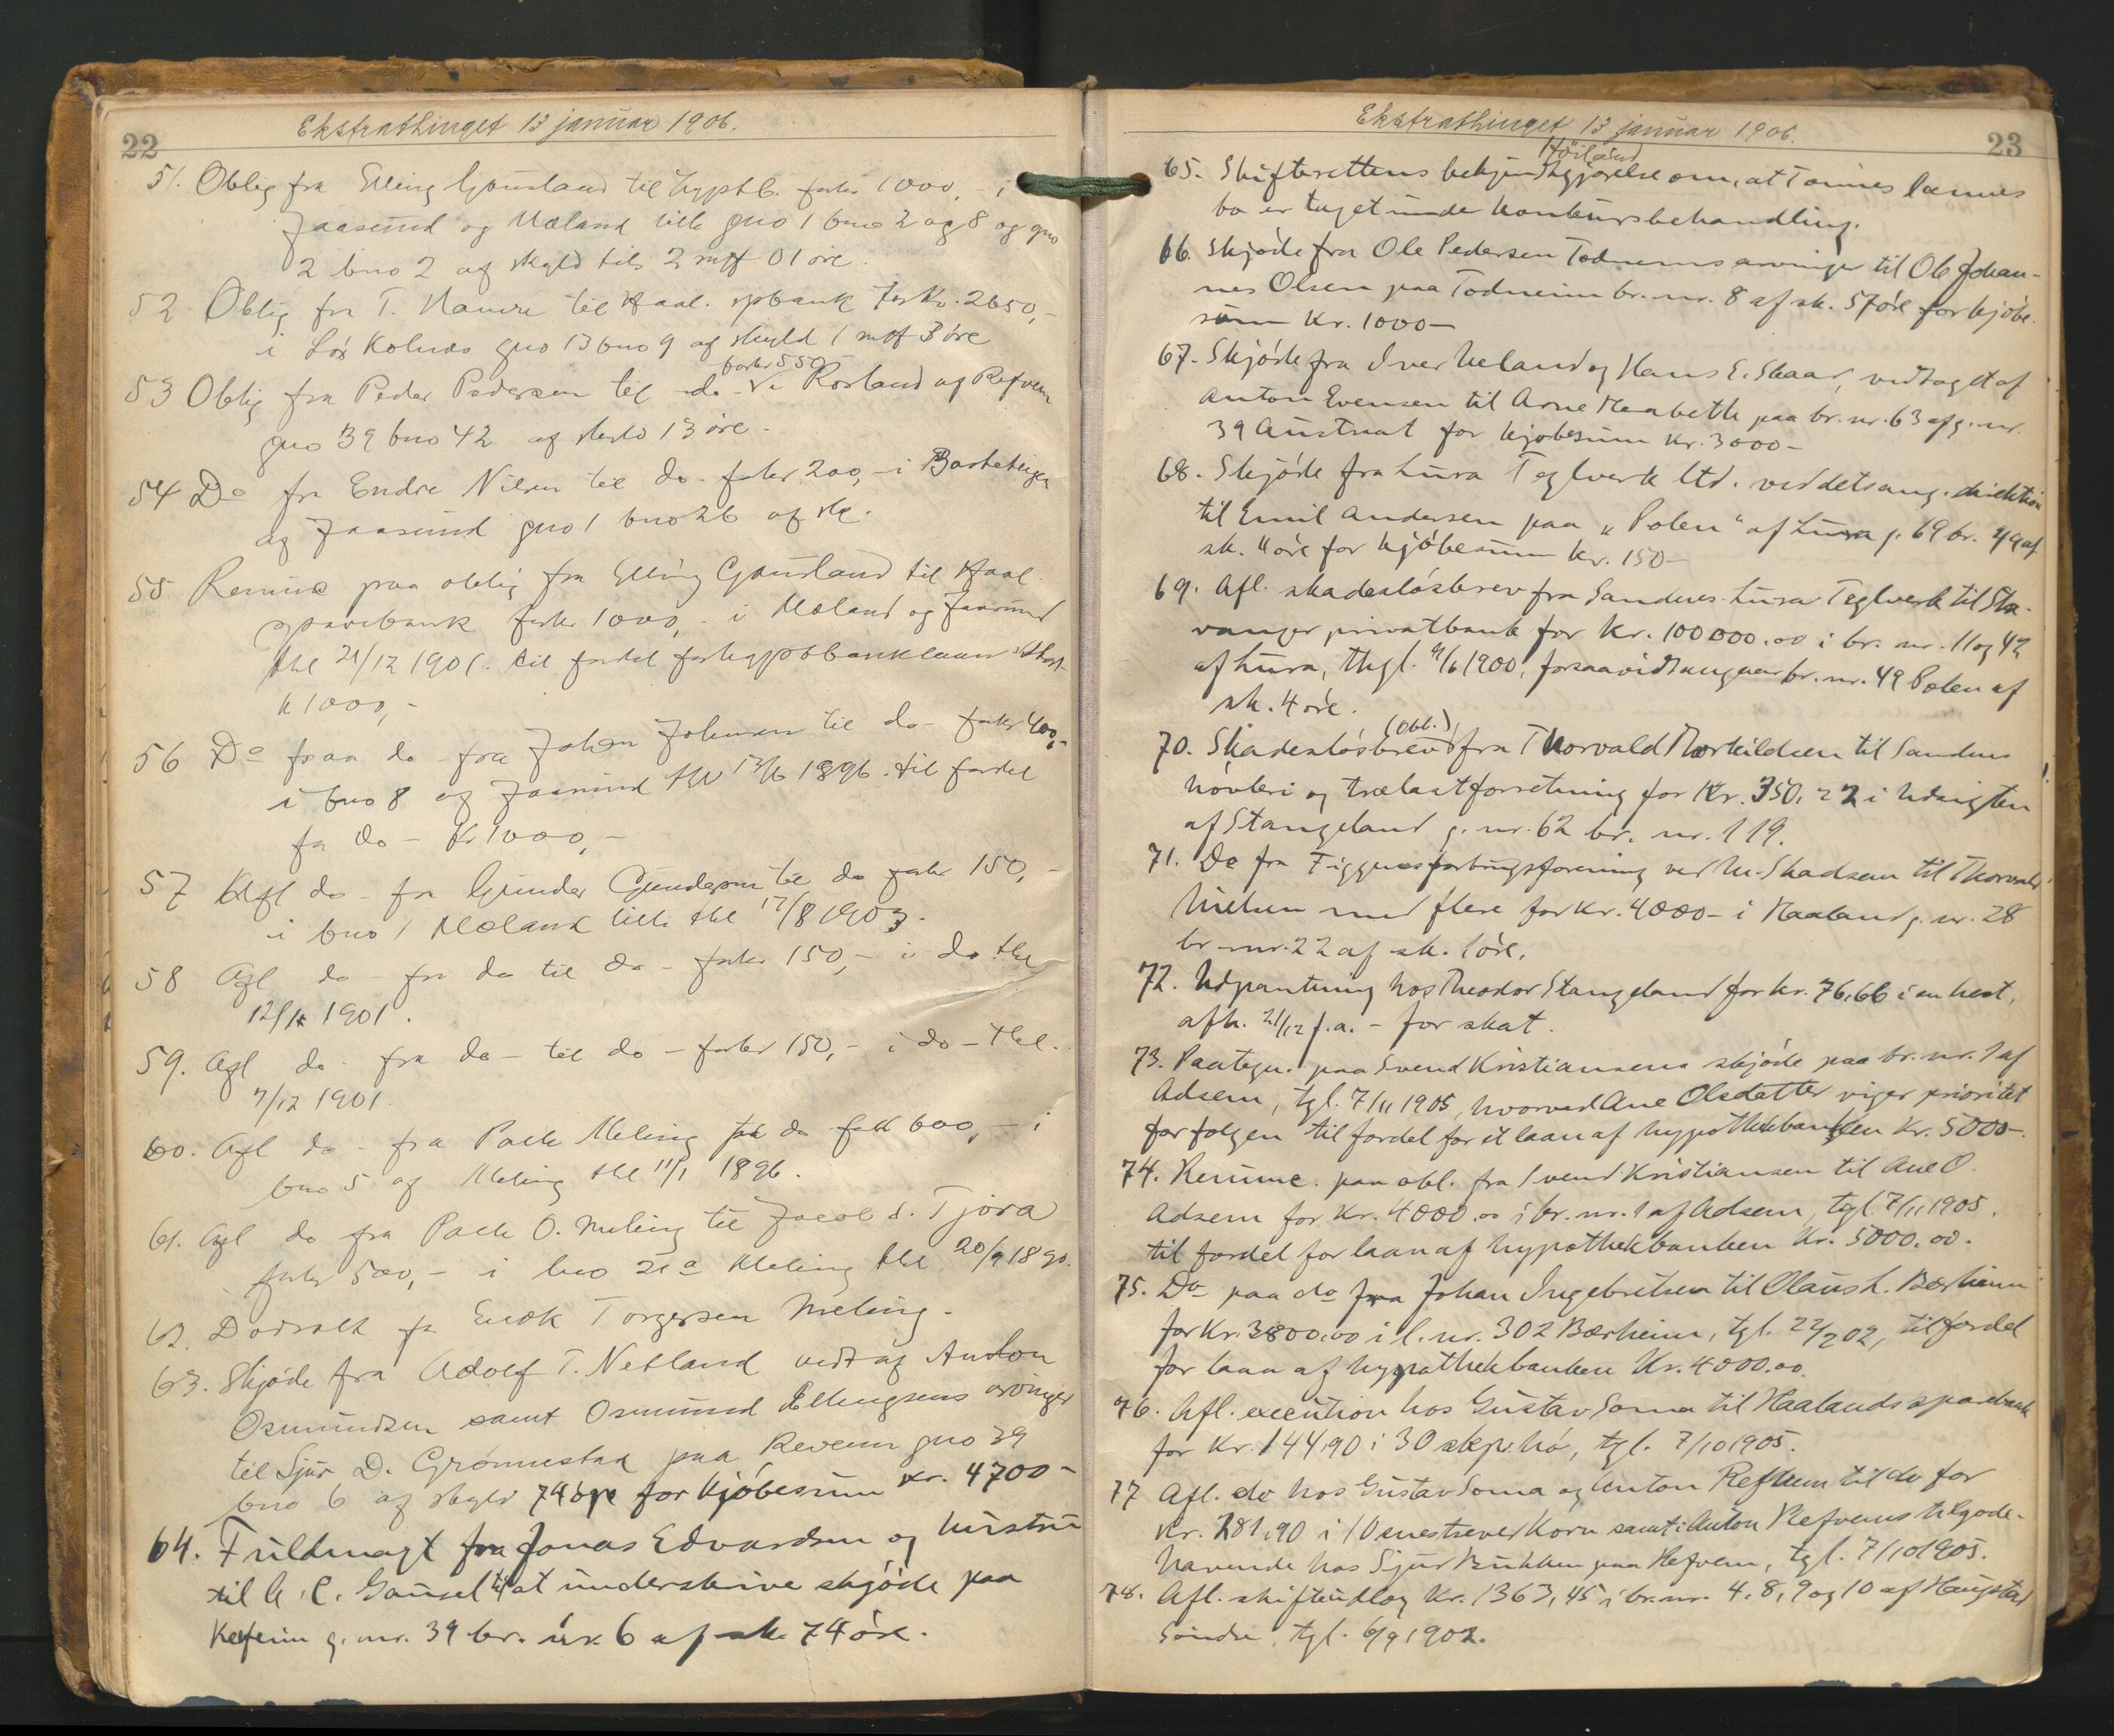 22
Ekstrathinget 13 januar 1906.
51. Oblig fra Elling Gausland til hypotb. for kr 1000,- i
Jaasund og Meland lille gno 1 bno 2 og 8 og gno
2 bno 2 af skyld tils 2 mrk 01 øre.
52 Oblig fra T. Hamre til Haal. spbank for Kr. 2650,-
i Kolnes gno 13 bno 9 af skyld 1 mrk 3 øre
for kr 550
53 Oblig fra Peder Pedersen til do i Rosland af Refvem
gno 39 bno 42 af skyld 13 øre.
54 Do fra Endre Nilsen til do for kr 200,- i
af Jaasund gno 1 bno 26 af sk.
55 Renunc paa oblig fra Elling Gausland til Haal.
sparebank for kr 1000,- i Meland og Jaasund
thl 21/12 1901. til fordel for hypothbanklaan
k 1000,-
56 Do paa do fra Johan Johnsen til do for kr 400,-
i bno 8 af Jaasund thl 1896. til fordel
for do - Kr 1000,-
57 Afl do - fra Gunder Gundersen til do for kr 150,-
i bno 1 Meland lille thl 17/8 1903.
58 Afl do - fra do til do - for kr 150,- i do thl
1901.
59. Afl do - fra do - til do - for kr 150,- i do - thl.
7/12 1901.
60. Afl do - fra Palle Meling til do for kr 600,- i
bno 5 af Meling thl 11/1 1896.
61. Afl do fra Palle O. Meling til Jacob S. Tjora
for kr 500,- i bno 21a Meling thl 20/9 1890.
62. Dødsatt fr Enok Torgersen Meling.
63. Skjøde fra Adolf T. Netland vedt af Anton
Osmundsen samt Osmund Ellingsens arvinger
til Sjur D. Grønnestad paa Revem gno 39
bno 6 af skyld 74 øre for kjøbesum kr. 4700-
64. Fuldmagt fra Jonas Edvardsen og hustru
til A. C. Gausel til at underskrive skjøde paa
Refvem g. nr. 39 br. nr. 6 af sk. 74 øre.
23
Ekstrathinget 13 januar 1906.
Höiland
65. Skifterettens bekjendtgjørelse om, at Tønnes Lennes
bo er taget under konkursbehandling.
66. Skjøde fra Ole Pedersen Todnems arvinger til Ole Johan-
nes Olsen paa Todneim br. nr. 8 af sk. 57 øre for kjøbe-
sum Kr. 1000-
67. Skjøde fra Iver Ueland og Hans E. Skaar, vedtaget af
Anton Evensen til Arne Maabeth paa br. nr. 63 af g. nr.
39 Austraat for kjøbesum kr. 3000-
68. Skjøde fra Lura Teglverk ltd. ved dets ang. direktion
til Emil Andersen paa „Polen" af Lura g. 69 br. 49 af
sk. 4 øre for kjøbesum kr. 150-
69. Afl. skadesløsbrev fra Sandnes-Lura Teglverk til Sta-
vanger privatbank for Kr. 100000.00 i br. nr. 11 og 42
af Lura, thgl. 1900, forsaavidt angaar br. nr. 49 Polen af
sk. 4 øre.
(Obl.)
70. Skadesløsbrev fra Thorvald Torkildsen til Sandnes
høvleri og trælastforretning for Kr. 350,22 i Udsigten
af Stangeland g. nr. 62 br. nr. 119.
71. Do fra Figgnes forbrugsforening ved M. Skadsem til Thorvald
Nielsen med flere for Kr. 4000- i Haaland g. nr. 28
br nr. 22 af sk. 1 øre.
72. Udpantning hos Theodor Stangeland for kr. 76,66 i en hest,
afh. 21/12 f.a. - for skat.
73. Paategn. paa Svend Kristiansens skjøde paa br. nr. 1 af
Adsem, tgl. 7/11 1905, hvorved Ane Olsdatter viger prioritet
for folgen til fordel for et laan af hypothekbanken Kr. 5000-.
74. Renunc. paa obl. fra Svend Kristiansen til Ane O.
Adsem for Kr. 4000.00 i br. nr. 1 af Adsem, tgl. 7/11 1905.
til fordel for laan af hypothekbanken Kr. 5000.00.
75. Do paa do fra Johan Ingebretsen til Olaus L. Bærheim
for Kr. 3800.00 i l. nr. 302 Bærheim, tgl. 22/2 02, til fordel
for laan af hypothekbanken Kr. 4000.00.
76. Afl. execution hos Gustav Soma til Haalands sparebank
for Kr. 144,90 i 30 skp. hø, tgl. 7/10 1905.
77 Afl. do hos Gustav Soma og Anton Refvem til do for
Kr. 281,90 i 10 snestrever korn samt i Anton Refvems tilgode-
havende hos Sjur Bukken paa Refvem, tgl. 7/10 1905.
78. Afl. skifteudlæg Kr. 1363,45 i br. nr. 4, 8, 9 og 10 af Haugstad
Søndre, tgl. 6/9 1902.